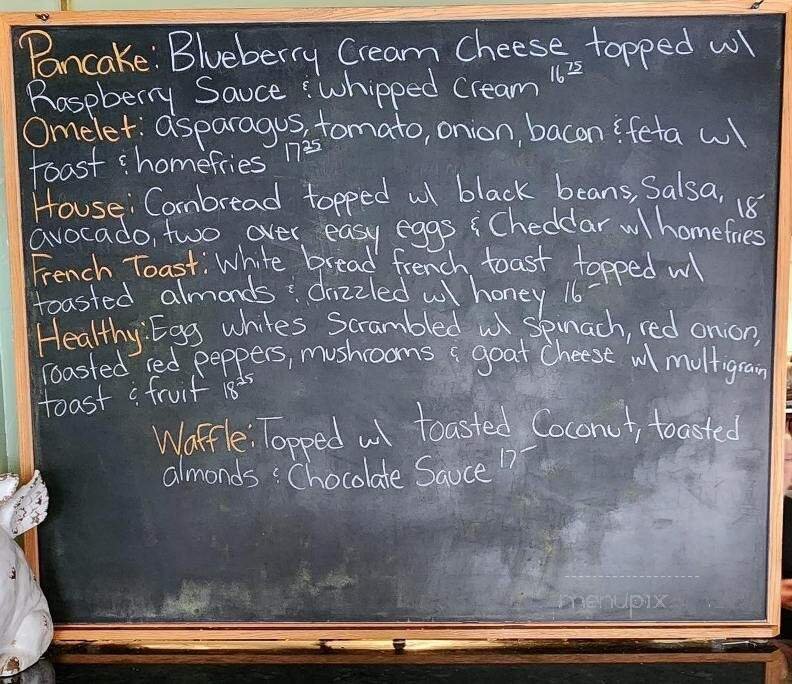 Pancake: Blueberry Cream Cheese topped w\
Raspberry Sauce & whipped cream 16 75
Omelet: asparagus, tomato, onion, bacon & feta w\
toast & homefries 17 25
House: Cornbread topped w\ black beans, Salsa, 18-
avocado, two over easy eggs & Cheddar w\ homefries
French Toast: White bread french toast topped w\
toasted almonds & drizzled w\ honey 16-
Healthy: Egg whites scrambled w\ spinach, red onion,
roasted red peppers, mushrooms & goat cheese w\ multigrain
toast & fruit 18 25
Waffle: Topped w\ toasted Coconut, toasted
almonds & Chocolate Sauce 17-
menupix